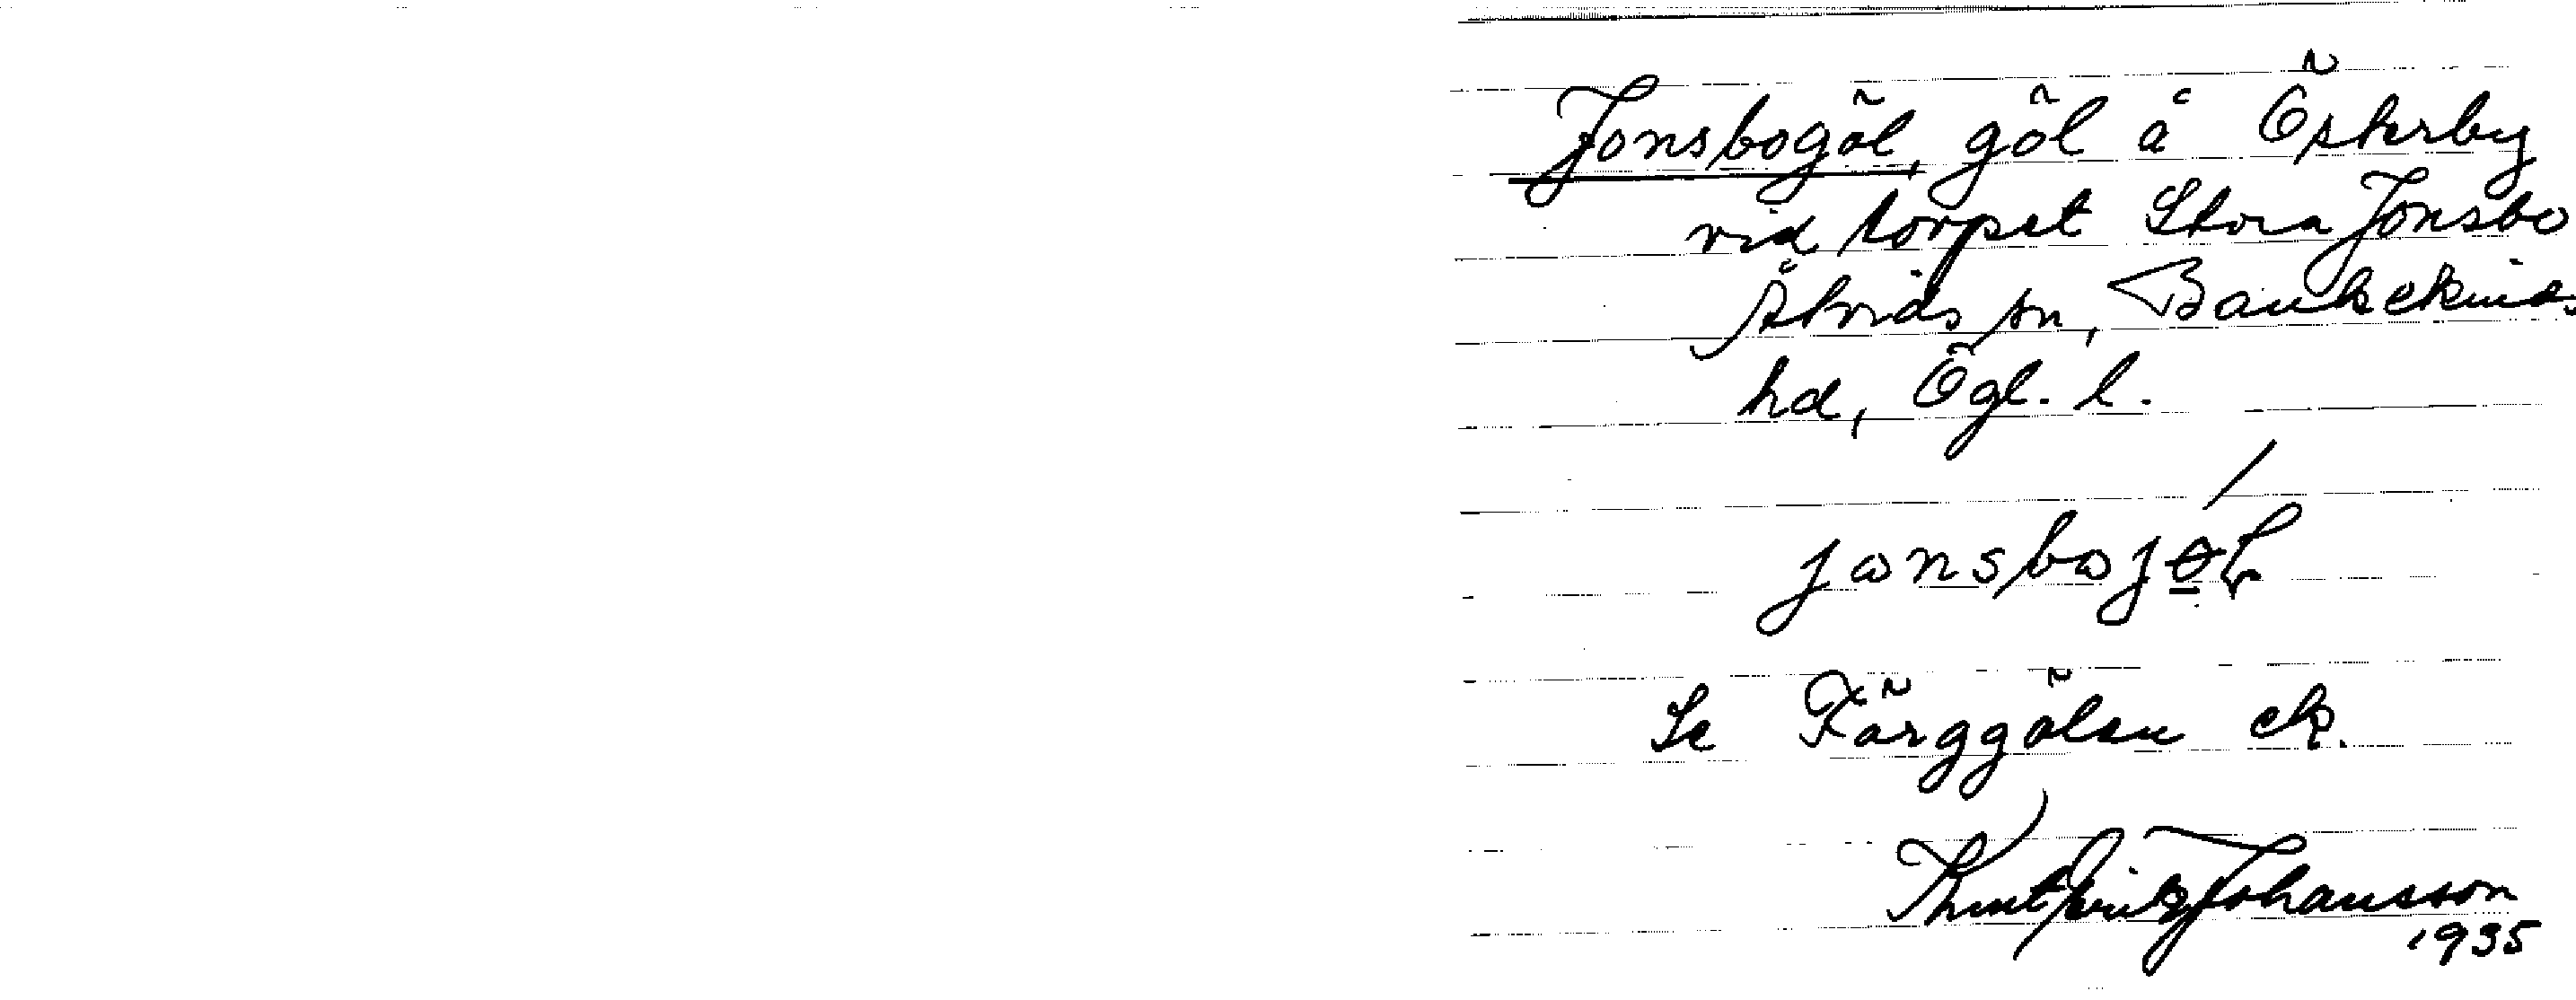 Jonsbogöl, göl å Österby
vid torpet Stora Jonsbo
Åtvids sn, Bankekinds
hd, Ögl. l.
jonsbojөl
Se Färggölen ek.
Knut Johansson
1935